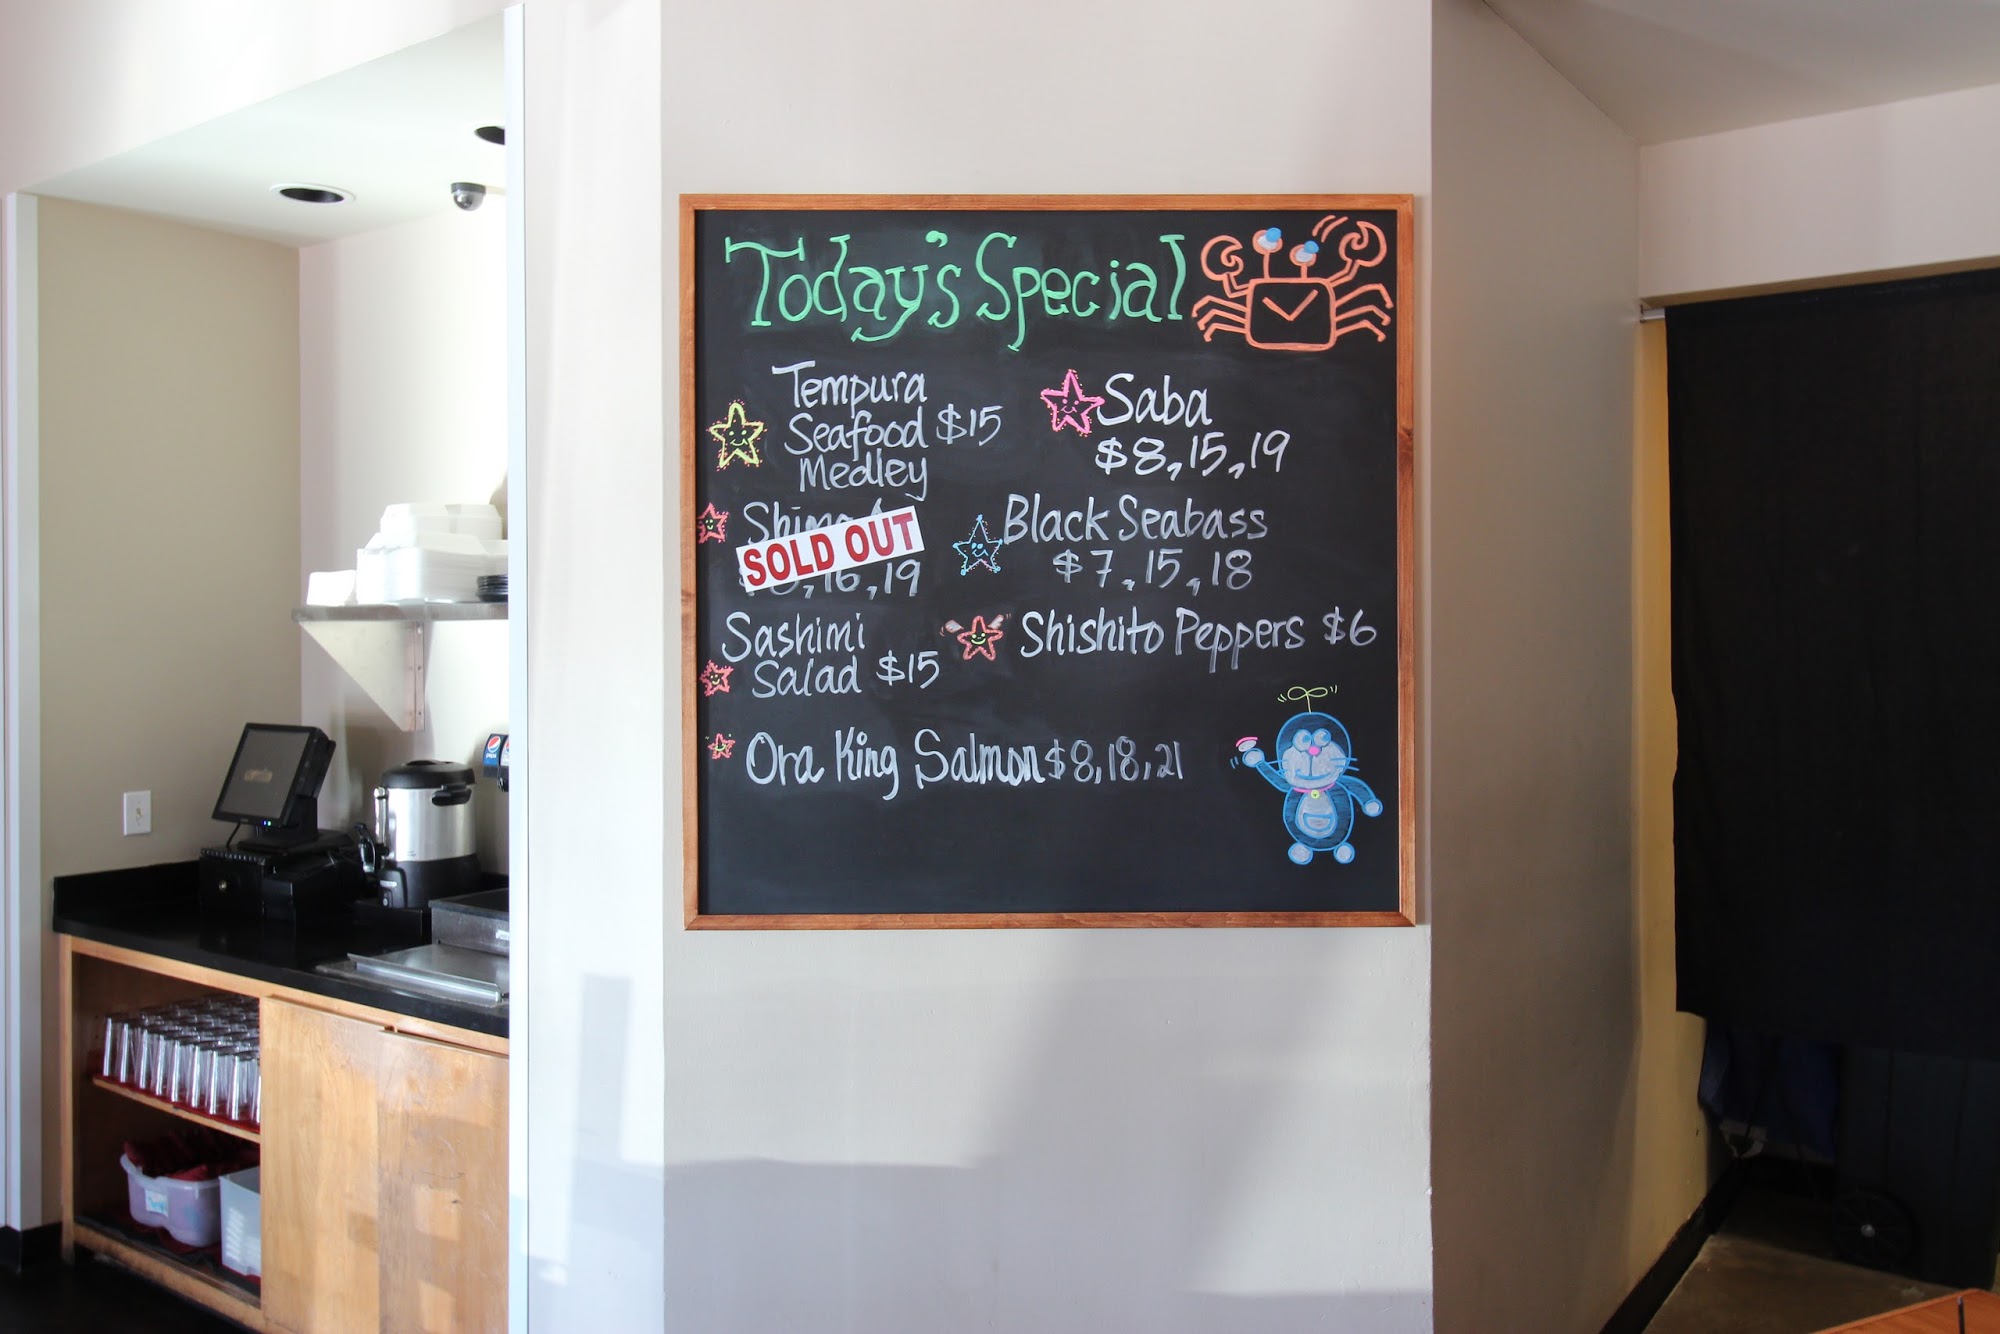 Today's Special
Tempura
Seafood $15
Medley
SOLD OUT
,16,19
Sashimi
Salad $15
Ora King Salmon $8,18,21
Saba
$8,15,19
Black Seabass
$7,15,18
Shishito Peppers $6
pepsi